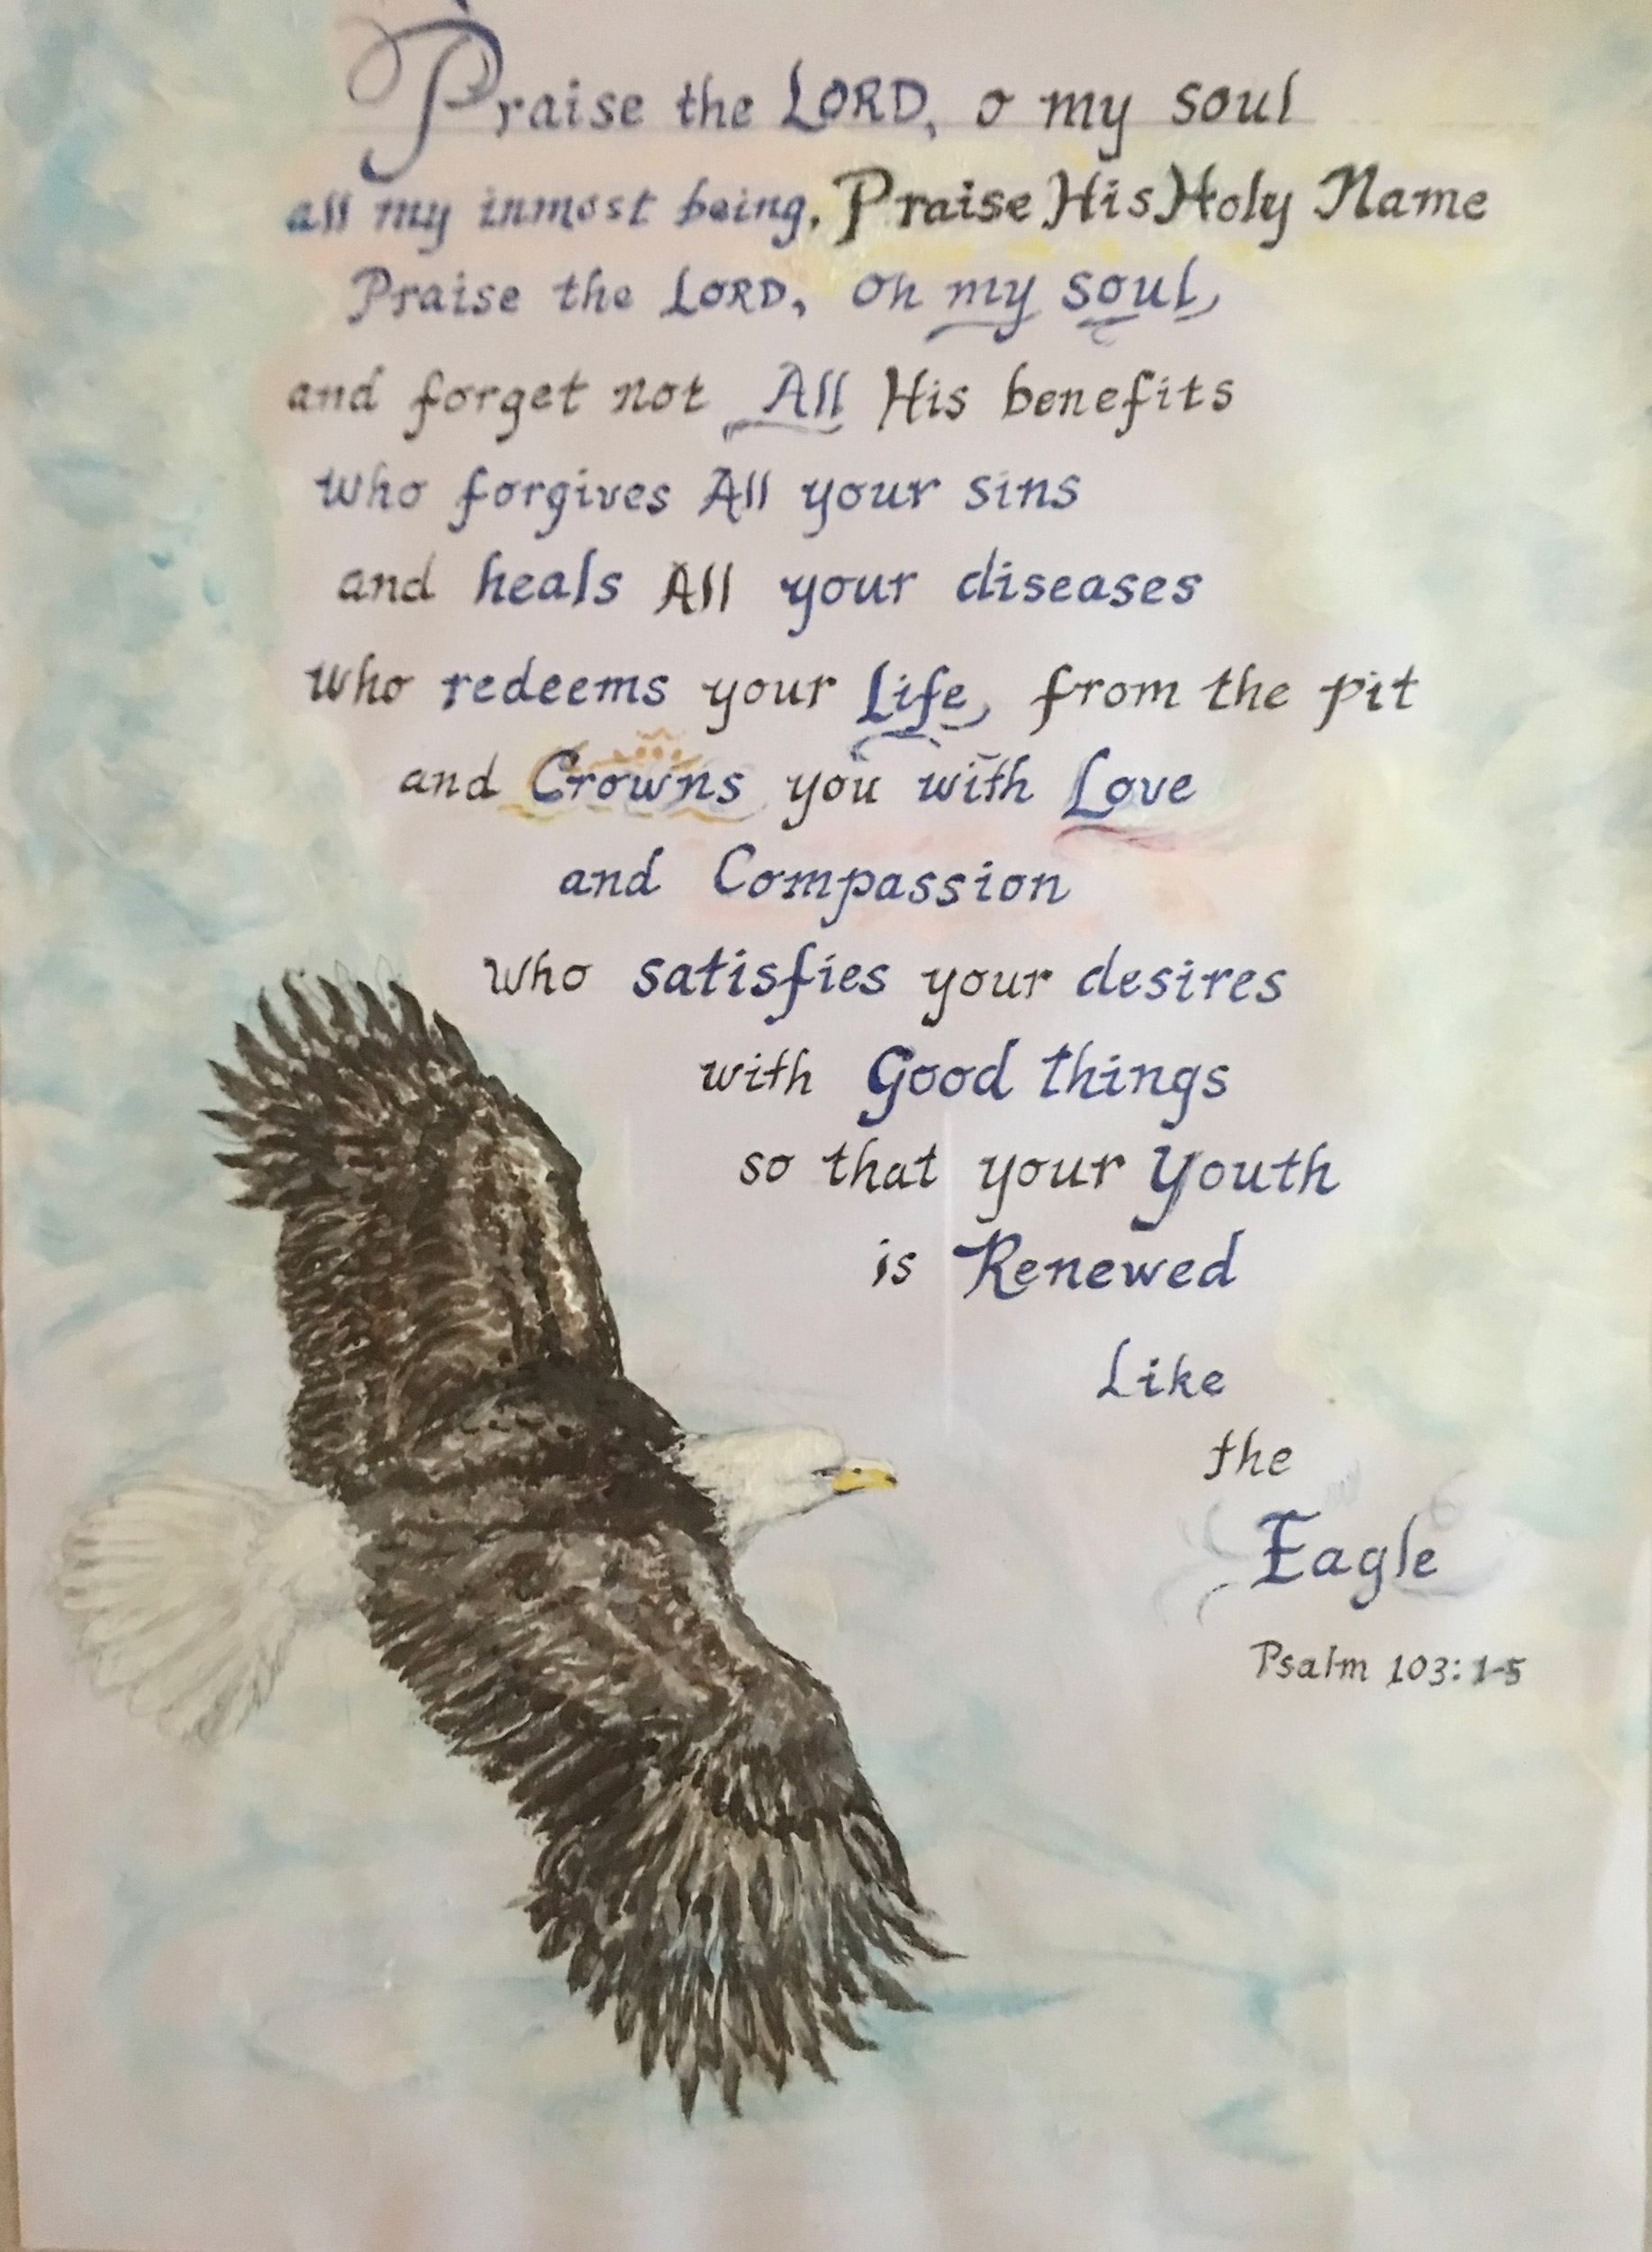 Praise the LORD, o my soul
all my inmost being, Praise His Holy Name
Praise the LORD, oh my soul,
and forget not All His benefits
who forgives All your sins
and heals All your diseases
who redeems your Life, from the pit
and Crowns you with Love
and Compassion
who satisfies your desires
with Good things
so that your Youth
is Renewed
Like
the
Eagle
Psalm 103:1-5